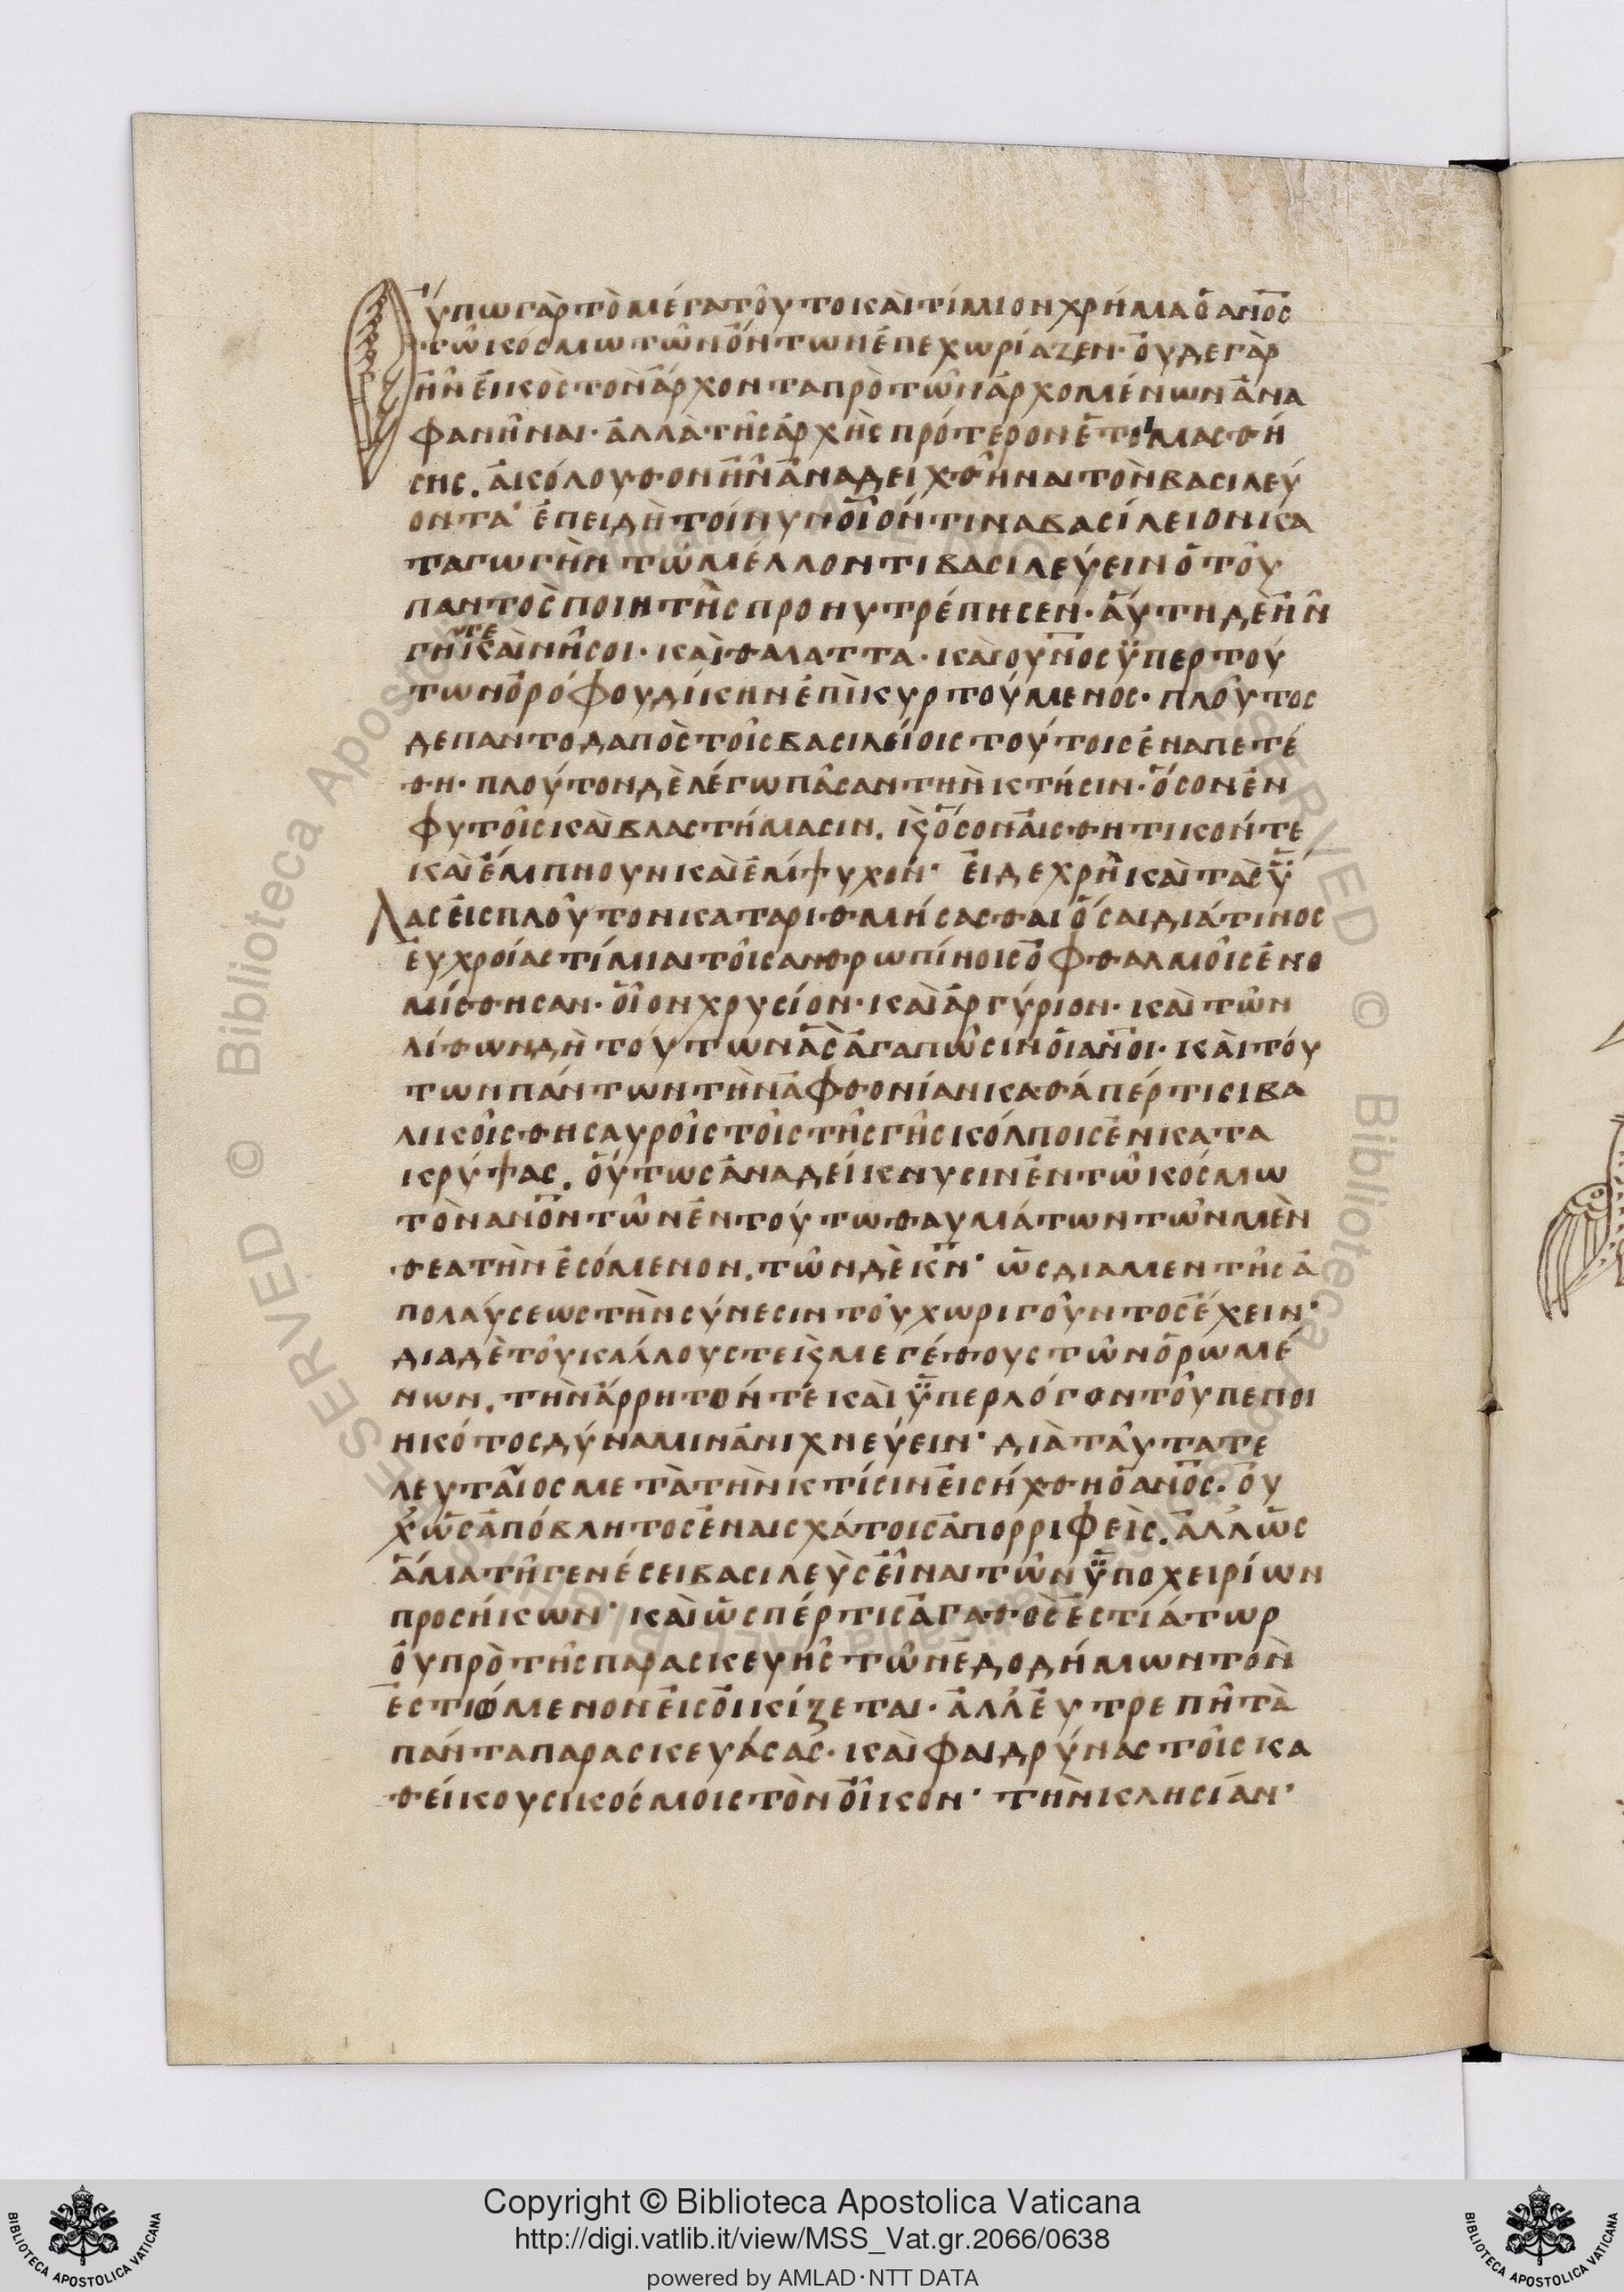 Ὀύπω γὰρ τὸ μέγα τοῦτο καὶ τίμιον χρῆμα ὁ ανος
τῶ κόσμω τῶν ὄντων ἐπεχωρίαζεν· ὀυδε γὰρ
ἦν ἐικὸς τὸν ἄρχοντα πρὸ τῶν ἀρχομένων ἀνα
φανῆναι· ἀλλὰ τῆς ἀρχῆς πρότερον ἐτοιμασθή
σης. ἀκόλουθον ἦν ἀναδειχθῆναι τὸν βασιλεύ
οντα· ἐπειδὴ τοίνυν οἷόν τινα βασίλειον κα
ταγωγὴν τῶ μέλλοντι βασιλεύειν ὁ τοῦ
παντὸς ποιητὴς προηυτρέπησεν· ἅυτη δὲ ἦν
γῆ τε καὶ νῆσοι· καὶ θαλαττα· καὶ ουνος ὑπερ τού
των ὀρόφου δίκην ἐπικυρτούμενος· πλοῦτος
δε παντοδαπὸς τοῖς βασιλείοις τούτοις ἐναπετέ
θη· πλοῦτον δὲ λέγω πᾶσαν τὴν κτῆσιν· ὅσον ἐν
φυτοῖς καὶ βλαστήμασιν. κ ὅσον ἀισθητικόν τε
καὶ ἔμπνουν καὶ ἔμψυχον· ἐι δε χρὴ καὶ τὰς ὕ
λας ἐις πλοῦτον καταριθμήσασθαι ὅσαι διά τινος
ἐυχροίας τίμιαι τοῖς ανθρωπίνοις ὀφθαλμοῖς ἐνο
μίσθησαν· οἷον χρυσίον· καὶ ἀργύριον· καὶ τῶν
λίθων δὴ τούτων ἃς ἀγαπῶσιν ὁι ανοι· καὶ τού
των πάντων τὴν ἀφθονίαν καθάπέρ τισι βα
λικοῖς θησαυροῖς τοῖς τῆς γῆς κόλποις ἐν κατα
κρύψας. ὅυτως ἀναδείκνυσιν ἐν τῶ κόσμω
τὸν ανον τῶν ἐν τούτω θαυμάτων τῶν μὲν
θεατὴν ἐσόμενον. τῶν δὲ κν· ὡς δια μεν τῆς ἀ
πολαύσεως τὴν σύνεσιν τοῦ χωριγοῦντος ἔχειν·
δια δὲ τοῦ κάλλους τε κ μεγέθους τῶν ὁρωμέ
νων. τὴν ἄρρητόν τε καὶ ὑπερ λόγον τοῦ πεποι
ηκότος δύναμιν ἀνιχνεύειν· διὰ ταῦτα τε
λευταῖος μετὰ τὴν κτίσιν ἐισήχθη ὁ ανος· ὀυ
χ ὡς ἀπόβλητος ἐν αισχάτοις ἀπορριφεὶς. ἀλλ ὡς
ἅμα τῆ γενέσει βασιλεὺς ἐῖναι τῶν ὑποχειρίων
προσήκων· καὶ ὥσπέρ τις ἀγαθὸς ἐστιάτωρ
ὀυ πρὸ τῆς παρασκευῆς τῶν ἐδοδήμων τὸν
ἐστιόμενον ἐισοικίζεται· ἀλλ ἐυτρεπῆ τὰ
πάντα παρασκευάσας· καὶ φαιδρύνας τοῖς κα
θείκουσι κόσμοις τὸν οἶκον· τὴν κλησίαν·
Copyright © Biblioteca Apostolica Vaticana
http://digi.vatlib.it/view/MSS_Vat.gr.2066/0638
powered by AMLAD·NTT DATA
BIBLIOTECA APOSTOLICA VATICANA
BIBLIOTECA APOSTOLICA VATICANA